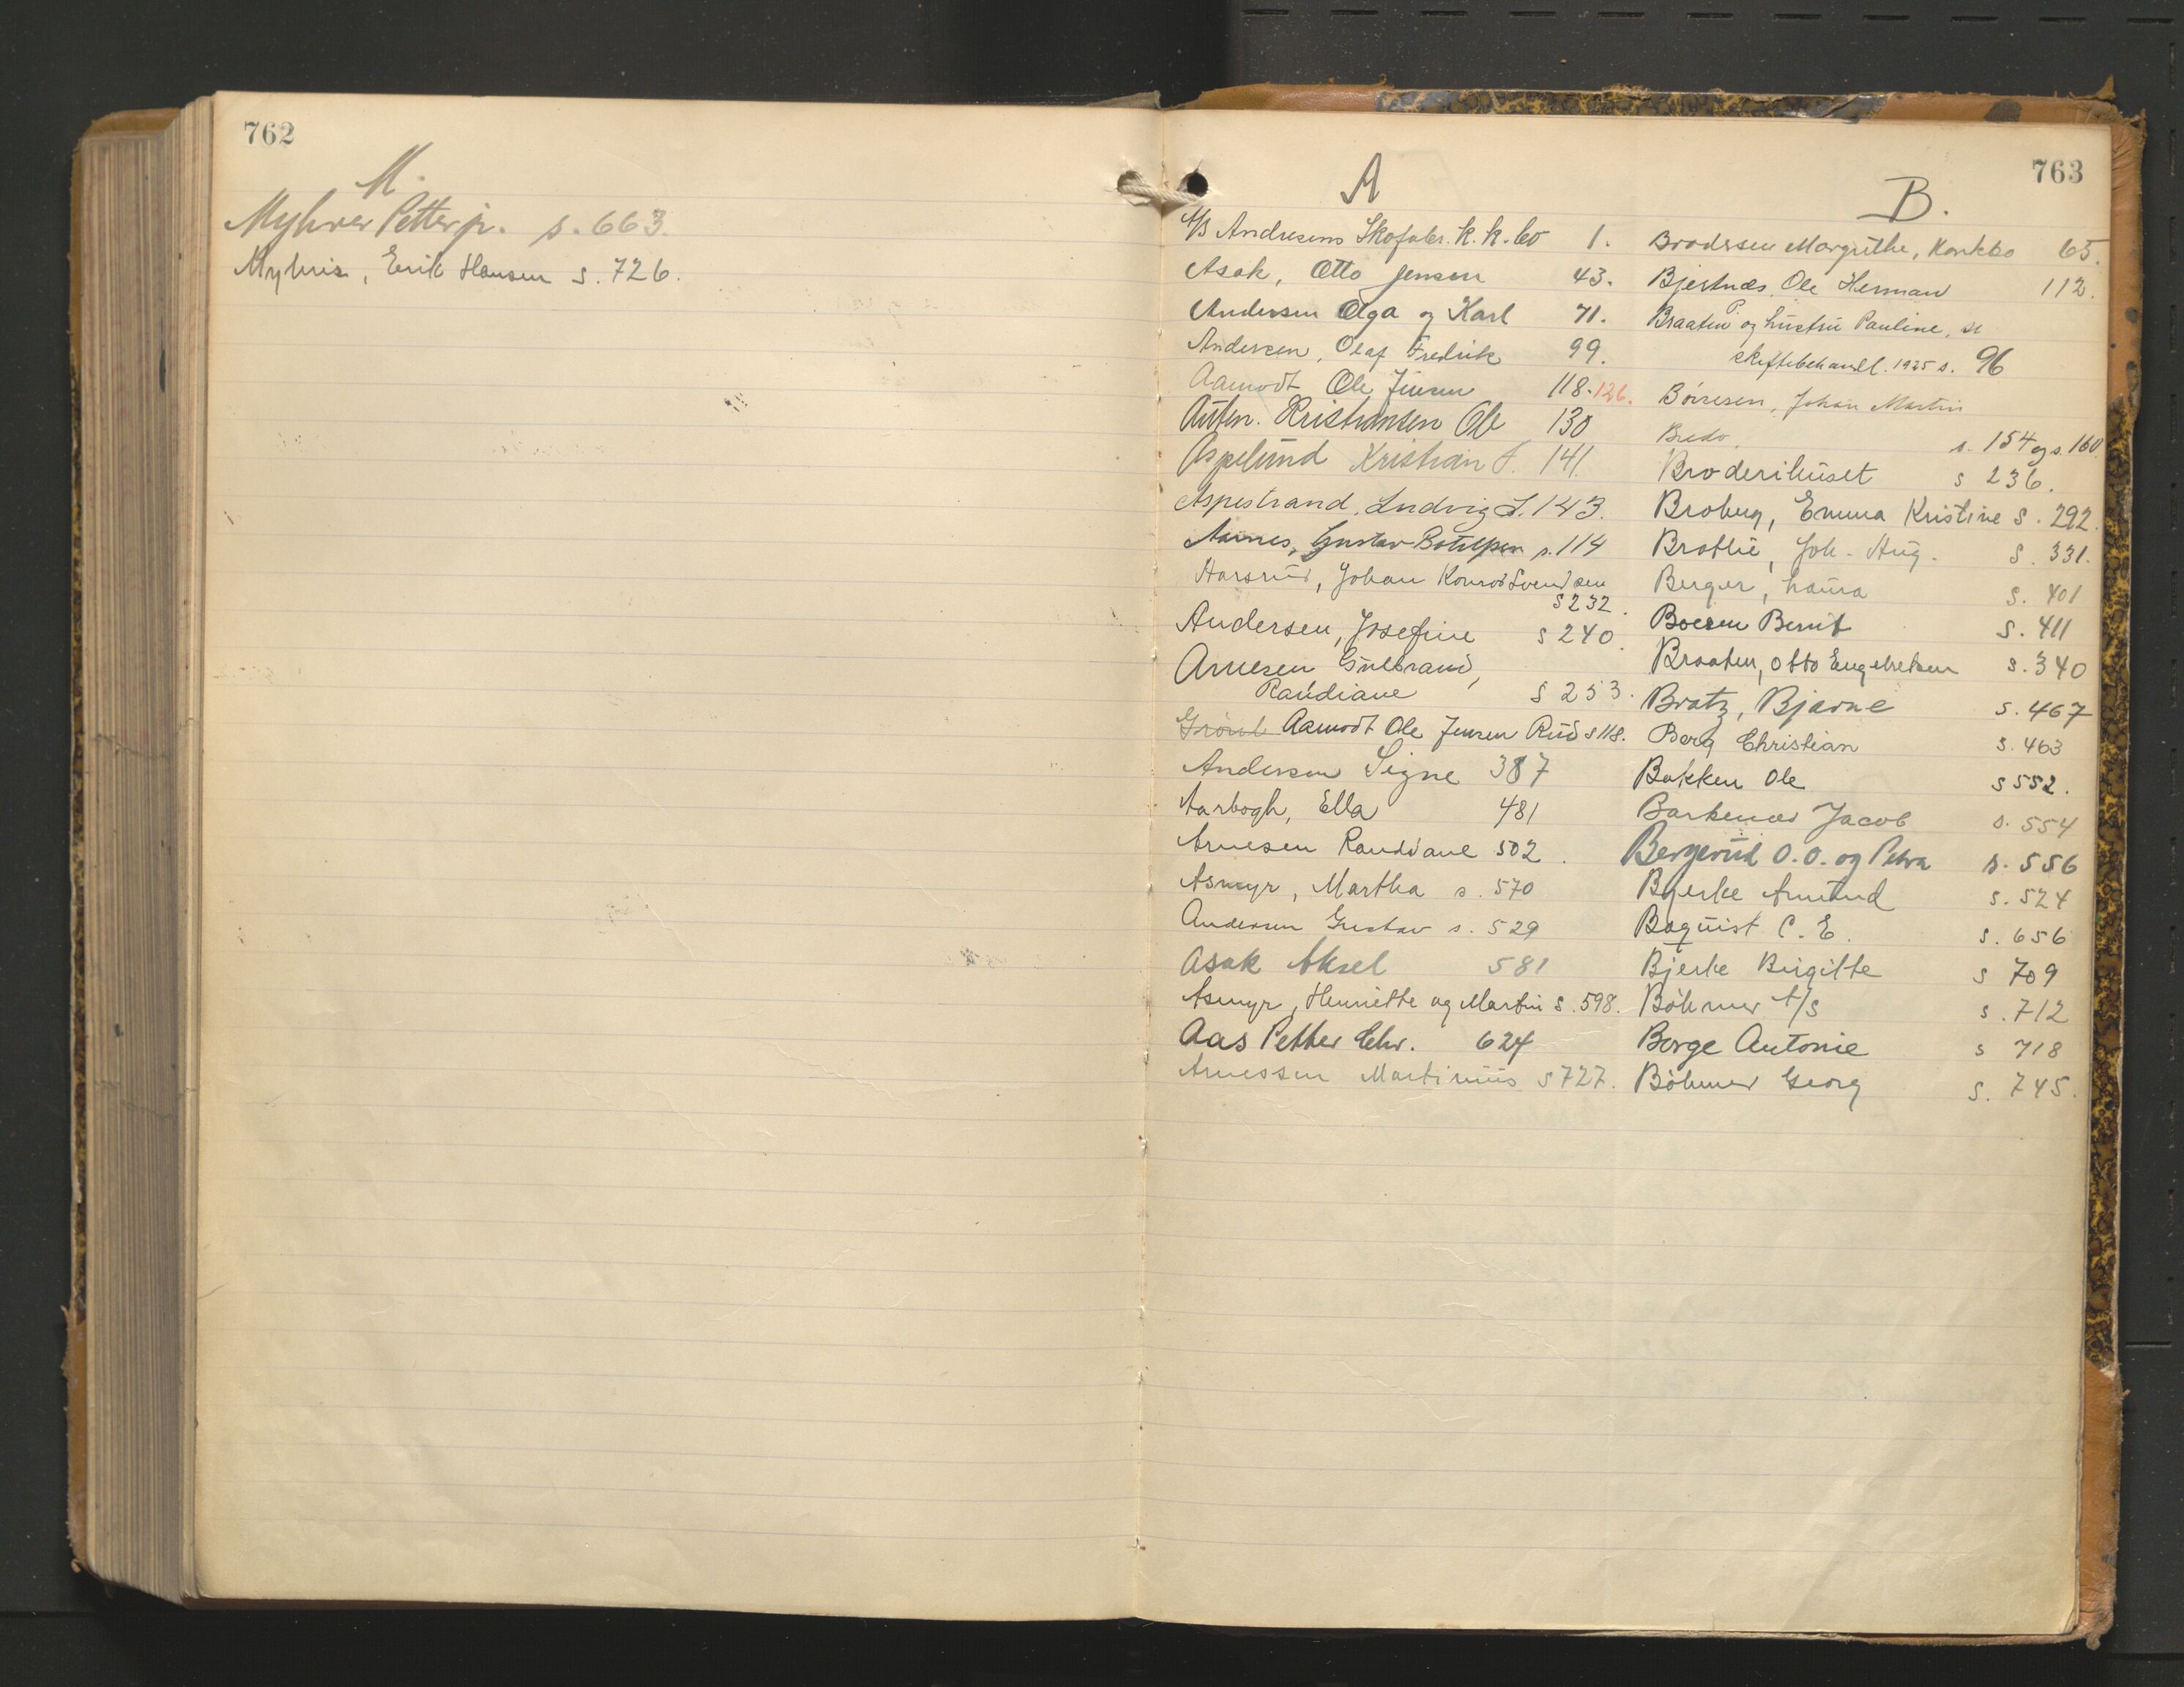 762
M.
Myhrer Petter jr. s. 663.
Myhrer, Erik Hansen s. 726.
763
A
A/S Andresens Skofabr. k.k.bo 1.
Asak, Otto Jensen 43.
Andersen Olga og Karl 71.
Andersen, Olaf Fredrik 99.
Aamodt Ole Jensen 118. 126.
Auten. Kristiansen Ole 130
Aspelund Kristian F. 141.
Aspestrand, Ludvig L. 143.
Aarnes, Gustav s. 114
Aarsrud, Johan Konrad Svendsen
s 232.
Andersen, Josefine s 240.
Arnesen Gulbrand,
Randiane s 253.
Grönl Aamodt Ole Jensen Rud s 118.
Andersen Signe 387
Aarbogh, Ella 481
Arnesen Randiane 502.
Asmyr, Martha s. 570
Andersen Gustav s. 529
Asak Aksel 581
Asmyr, Henriette og Martin s. 598.
Aas Petter Chr. 624
Arnessen Martinius s 727.
B.
Brodersen Margrethe, Konkbo 65.
Bjertnæs, Ole Herman 112.
Braaten P. og hustru Pauline, se
skiftebehandl. 1925 s. 96
Börresen, Johan Martin
Bredo. s. 154 og s. 160
Broderihuset s 236.
Broberg, Emma Kristine s. 292.
Brattlie, Joh. Aug. s. 331.
Berger, Laura s. 401
Boesen Bernt s. 411
Braaten, Otto Engebretsen s. 340
Bratz, Bjarne s. 467
Berg Christian s. 463
Bakken Ole s 552.
Barkenæs Jacob s. 554
Bergerud O.O. og Petra s. 556
Bjerke Amund s. 524
Boquist C. E. s. 656
Bjerke Birgitte s 709
Böhmer A/S s. 712
Borge Antonie s 718
Böhmer Georg s. 745.